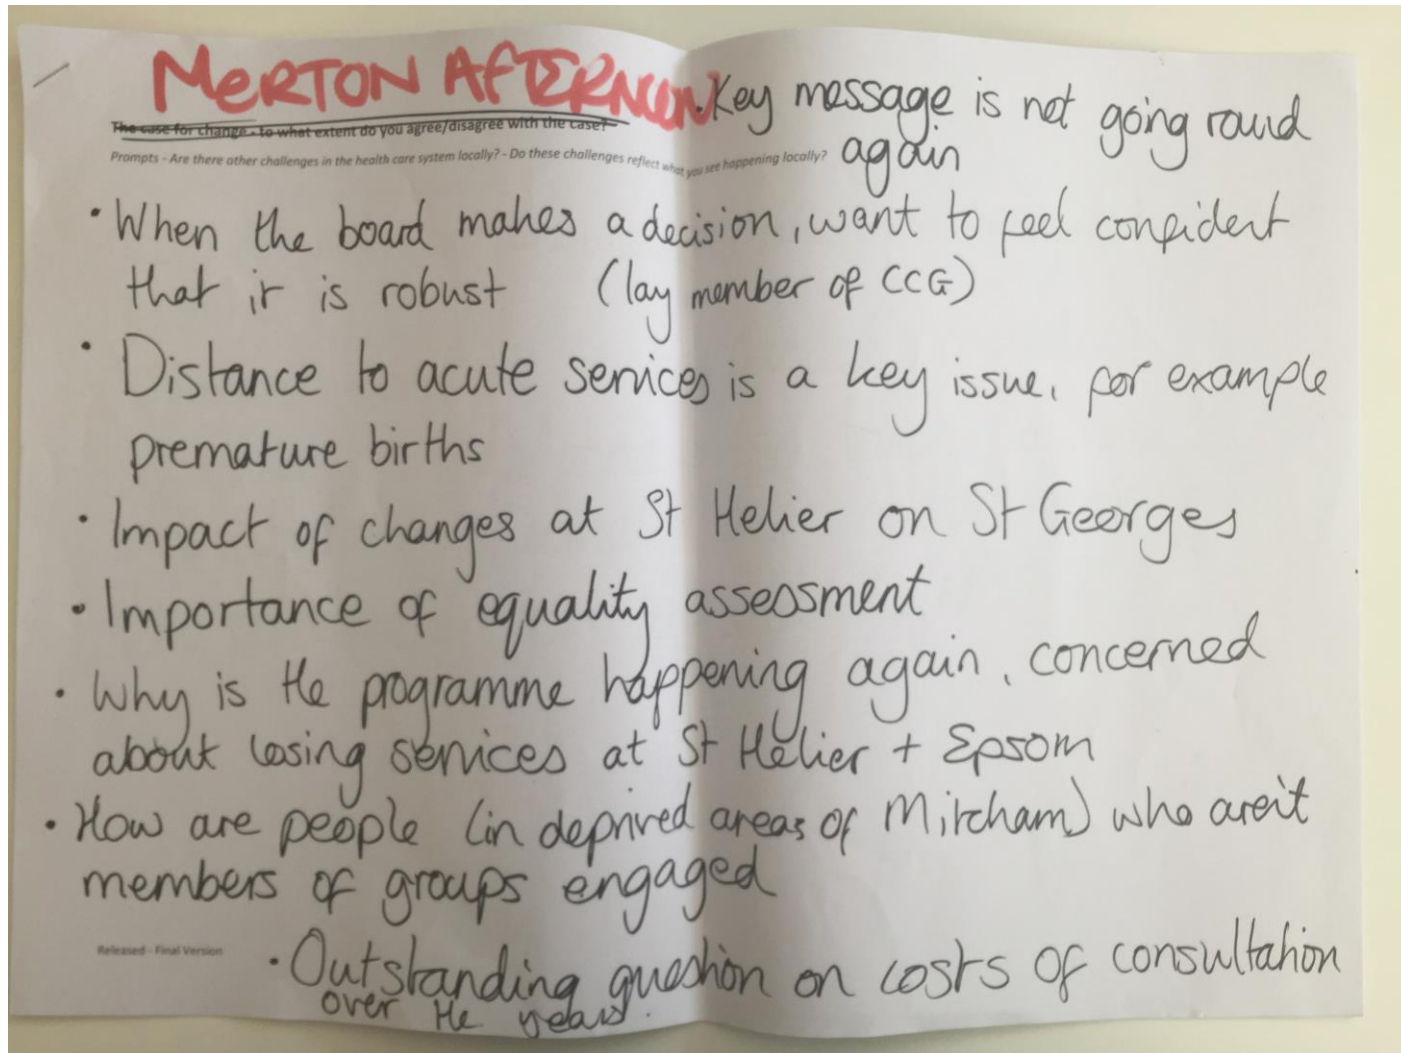 MERTON AFTERNOON
• Key message is not going round
again
The case for change - to what extent do you agree/disagree with the case?
Prompts - Are there other challenges in the health care system locally? - Do these challenges reflect what you see happening locally?
• When the board makes a decision, want to feel confident
that it is robust (lay member of CCG)
• Distance to acute services is a key issue, for example
premature births
• Impact of changes at St Helier on St Georges
• Importance of equality assessment
• Why is the programme happening again, concerned
about losing services at St Helier + Epsom
• How are people (in deprived areas of Mitcham) who aren't
members of groups engaged
Released - Final Version
• Outstanding question on costs of consultation
over the years.